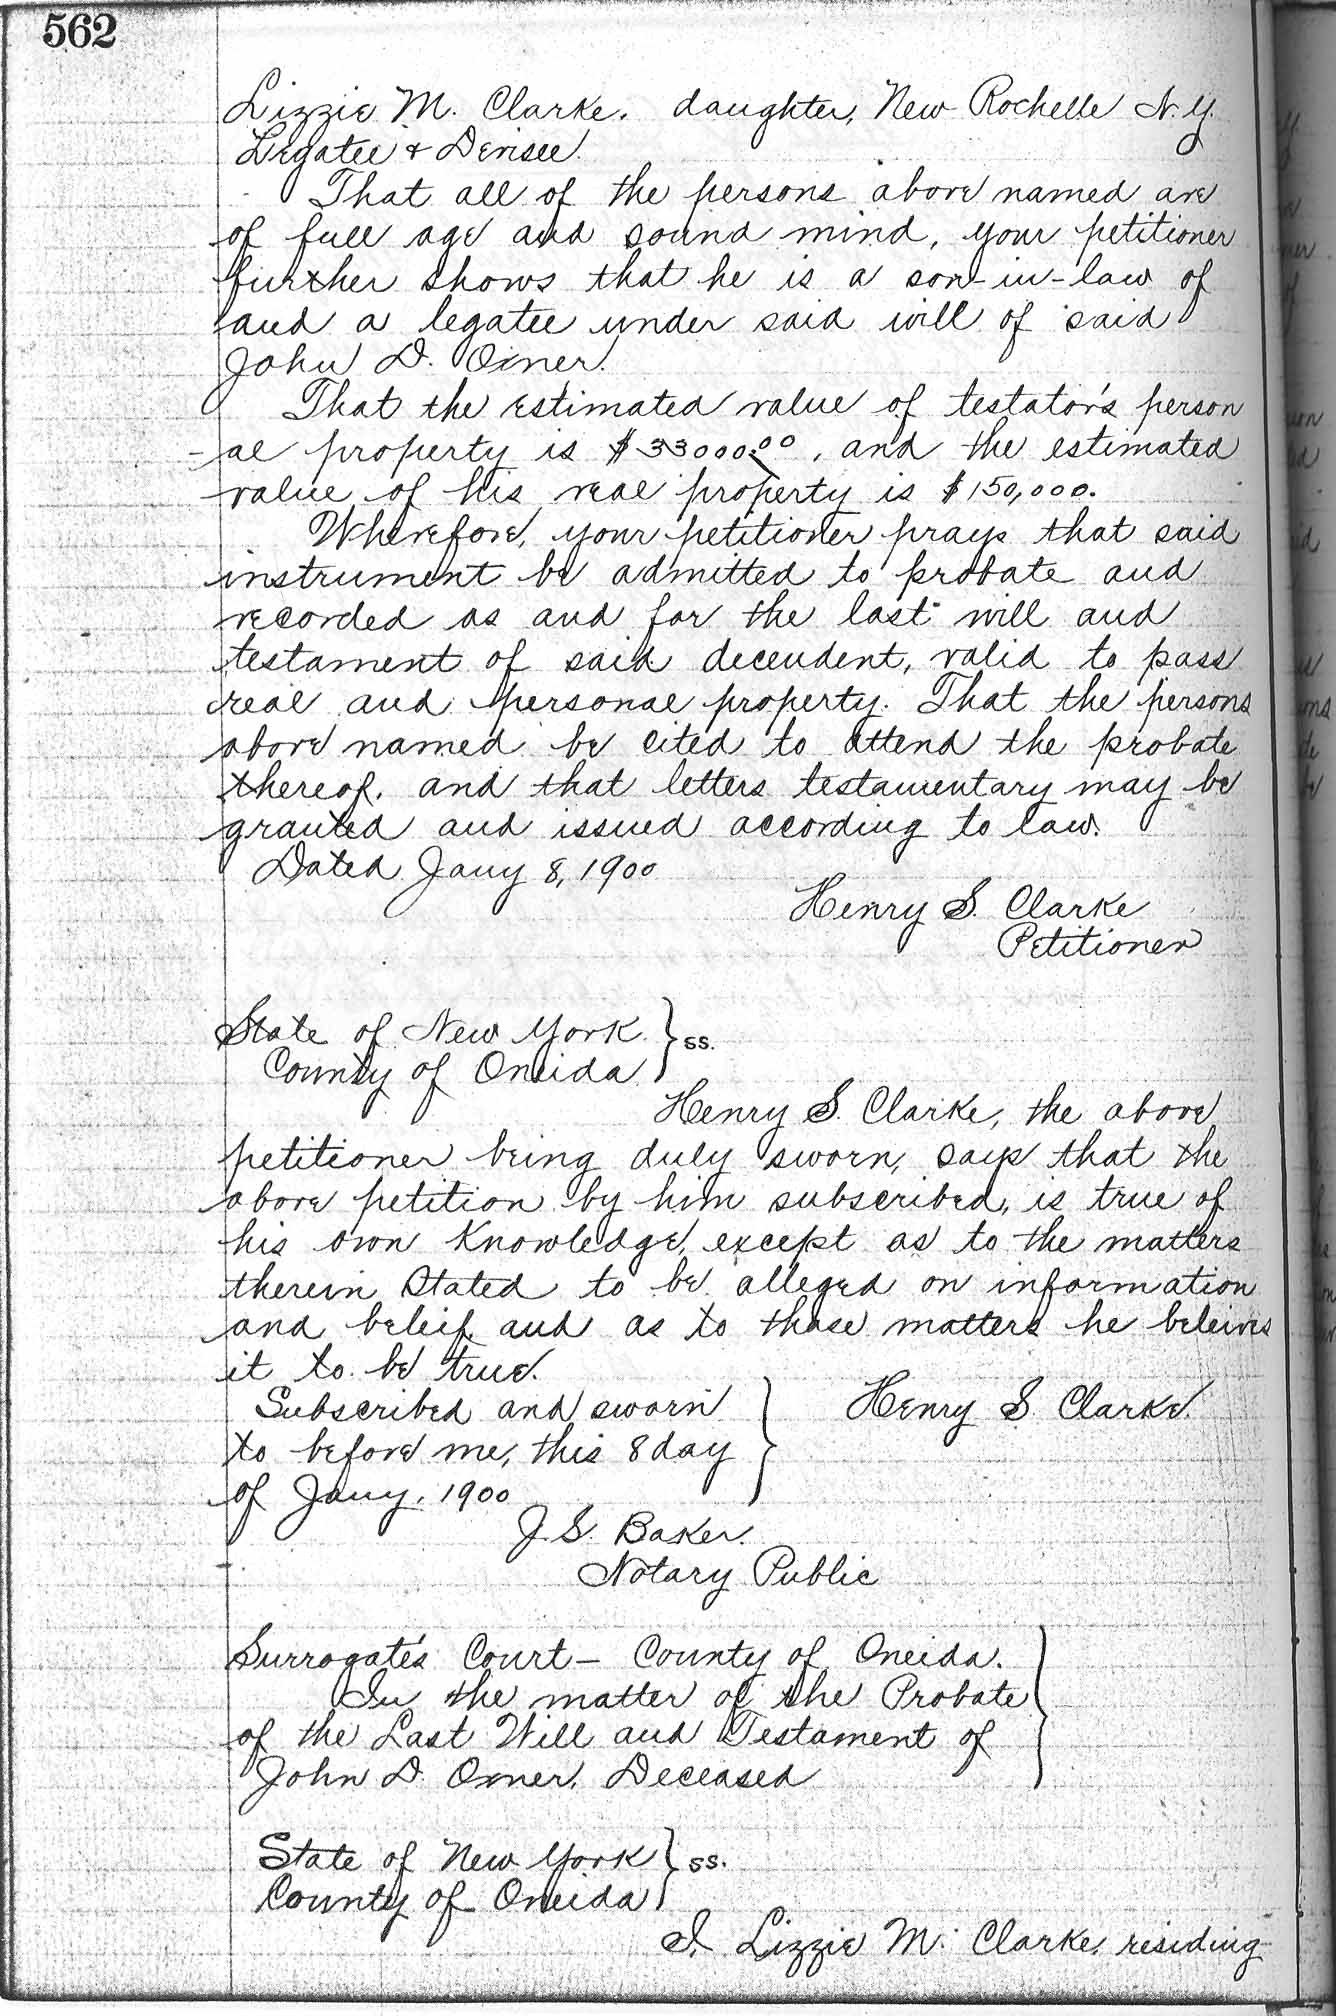 562
Lizzie M. Clarke. daughter, New Rochelle N.Y.
Legatee & Devisee.
That all of the persons above named are
of full age and sound mind, your petitioner
further shows that he is a son-in-law of
and a legatee under said will of said
John D.
That the estimated value of testator's person
-al property is $33000.00, and the estimated
value of his real property is $150,000.
Wherefore, your petitioner prays that said
instrument be admitted to probate and
recorded as and for the last will and
testament of said decendent, valid to pass
real and personal property. That the persons
above named be cited to attend the probate
thereof. and that letters testamentary may be
granted and issued according to law.
Dated Jany 8, 1900
Henry S. Clarke
Petitioner
State of New York } ss.
County of Oneida
Henry S. Clarke, the above
petitioner being duly sworn, says that the
above petition by him subscribed, is true of
his own Knowledge, except as to the matters
therein stated to be alleged on information
and beleif and as to those matters he beleives
it to be true.
Subscribed and sworn } Henry S. Clarke.
to before me, this 8 day
of Jany. 1900
J. S. Baker.
Notary Public
Surrogate's Court - County of Oneida. }
In the matter of the Probate
of the Last Will and Testament of
John D. Deceased
State of New York } ss.
County of Oneida
I, Lizzie M. Clarke, residing